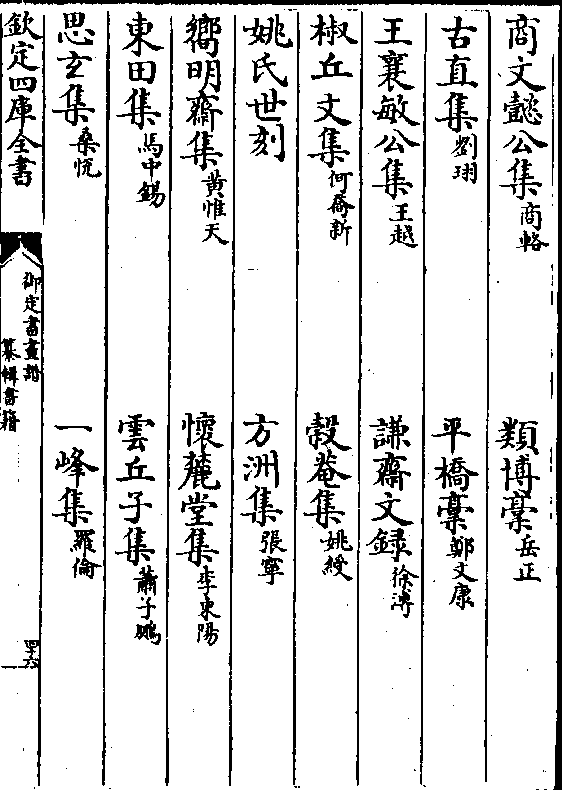 商文懿公集商輅　類博稾岳正
古直集劉珝　平橋稾鄭文康
王襄敏公集王越　謙齋文録徐溥
椒丘文集何喬新　榖菴集姚綬
姚氏世刻　方洲集張寧
嚮明齋集黄惟天　懷麓堂集李東陽
東田集馬中錫　雲丘子集蕭子鵬
思玄集桑悦　一峰集羅倫
欽定四庫全書　御定書畫譜　纂輯書籍　四十六